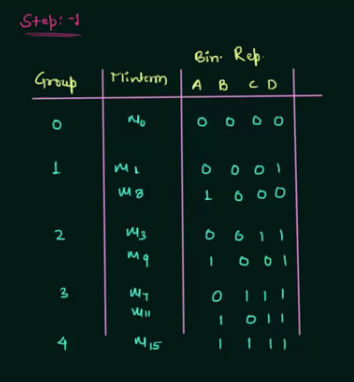 Step:-1
Bin. Rep.
Group Minterm A B C D
0 m0 0 0 0 0
1 m1 0 0 0 1
m8 1 0 0 0
2 m3 0 0 1 1
m9 1 0 0 1
3 m7 0 1 1 1
m11 1 0 1 1
4 m15 1 1 1 1